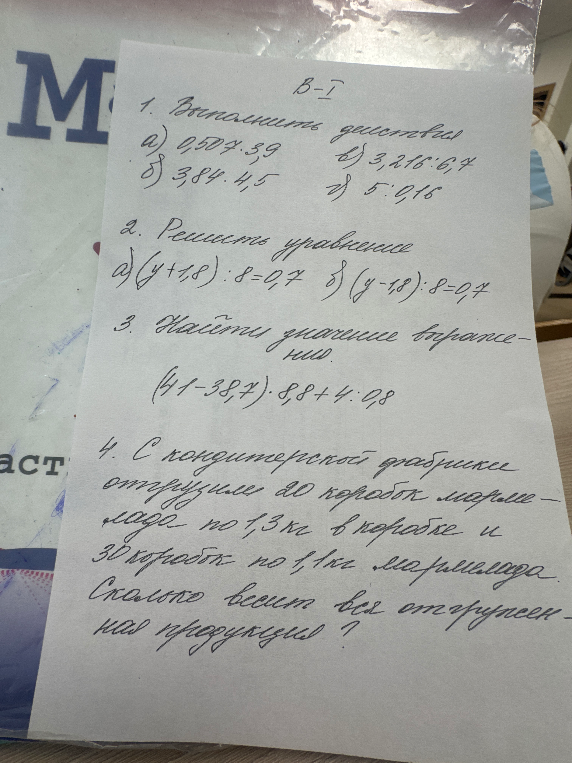 В-I
1. Выполнить действия
а) 0,507·3,9 в) 3,216:6,7
б) 3,84·4,5 г) 5:0,16
2. Решить уравнение
а) (y+1,8):8=0,7 б) (y-1,8):8=0,7
3. Найти значение выраже-
ния.
(41-38,7)·8,8+4:0,8
4. С кондитерской фабрики
отгрузили 20 коробок марме-
лада по 1,3 кг в коробке и
30 коробок по 1,1 кг мармелада.
Сколько весит вся отгружен-
ная продукция?
М
аст